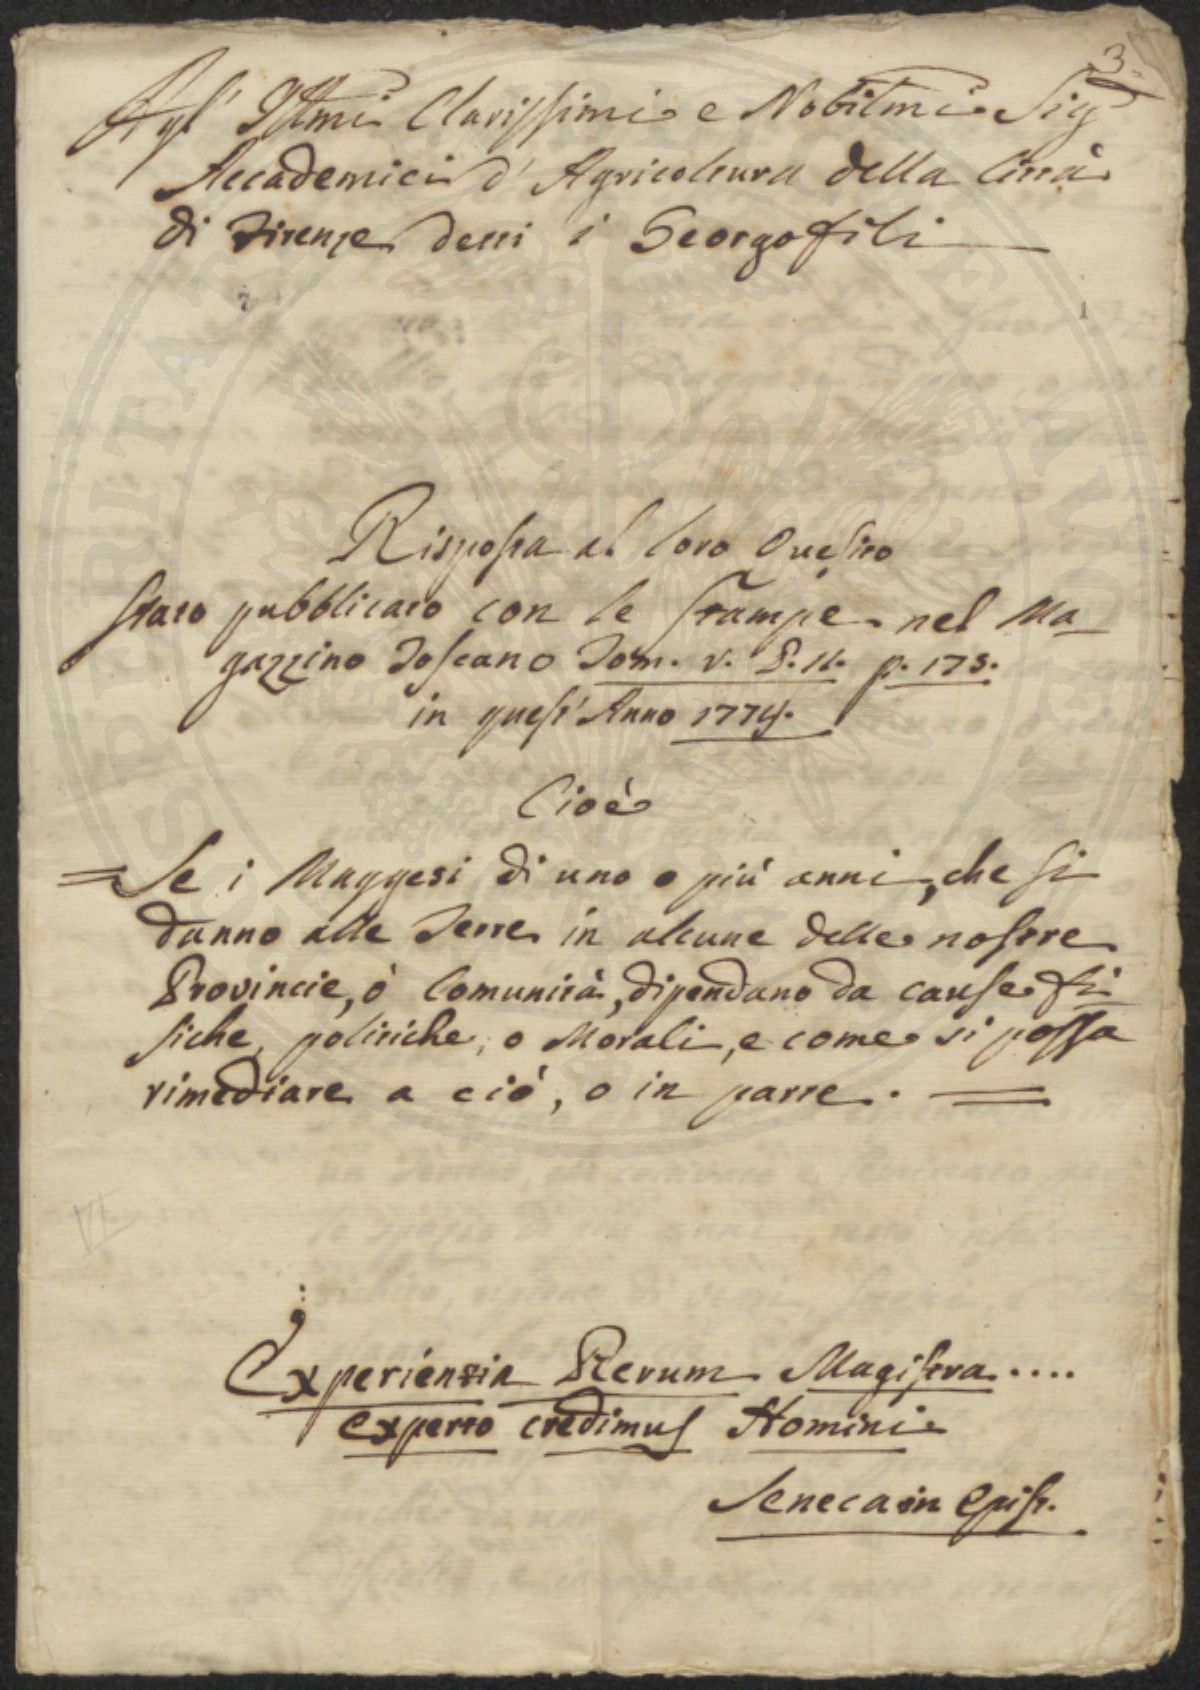 3.
Agl' Illmi Clarissimi e Nobilmi Sig
Accademici d' Agricoltura della Città
di Firenze detti i Georgofili
Risposta al loro Quesito
stato pubblicato con le stampe nel Ma
gazzino Toscano Tom. V. P. II. p. 175.
in quest' Anno 1774.
Cioè
= Se i Maggesi di uno o più anni, che si
danno alle Terre in alcune delle nostre
Provincie, ò Comunità, dipendano da cause fi
siche, politiche, o Morali, e come si possa
rimediare a ciò, o in parte. =
VI
Experientia Rerum Magistra....
experto credimus Homini
Seneca in Epist.